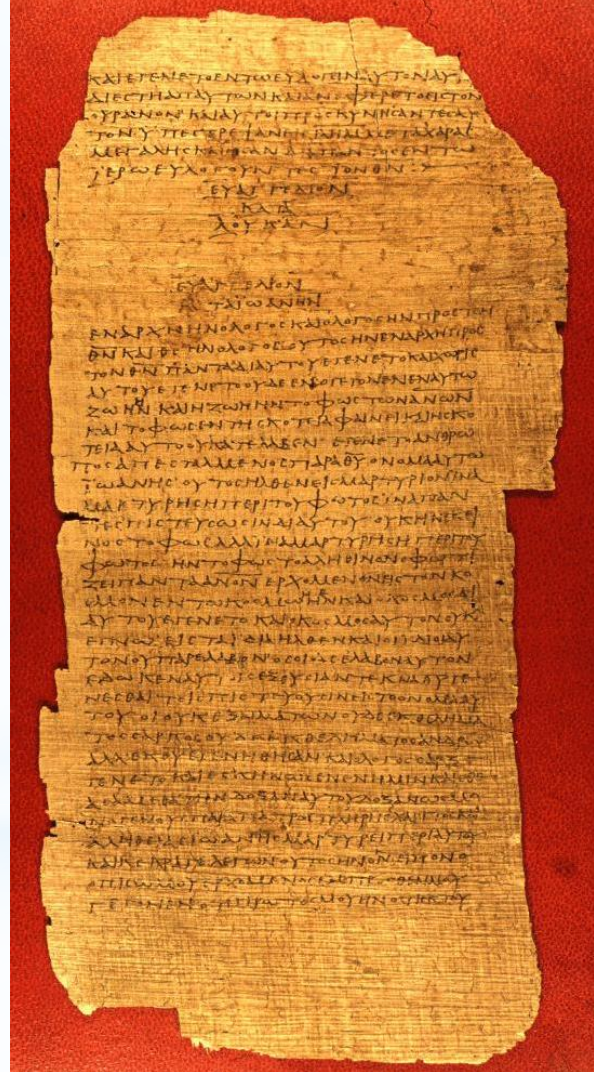 ΚΑΙΕΓΕΝΕΤΟΕΝΤΩΕΥΛΟΓΕΙΝΑΥΤΟΝΑΥ
ΔΙΕϹΤΗΑΠΑΥΤΩΝΚΑΙΑΝΕΦΕΡΕΤΟΕΙϹΤΟΝ
ΟΥΡΑΝΟΝΚΑΙΑΥΤΟΙΠΡΟϹΚΥΝΗϹΑΝΤΕϹΑΥ
ΤΟΝΥΠΕϹΤΡΕΨΑΝΕΙϹΙΛΗΜΜΕΤΑΧΑΡΑϹ
ΜΕΓΑΛΗϹΚΑΙΗϹΑΝΔΙΑΠΑΝΤΟϹΕΝΤΩ
ΙΕΡΩΕΥΛΟΓΟΥΝΤΕϹΤΟΝΘΝ
ΕΥΑΓΓΕΛΙΟΝ
ΚΑΤΑ
ΛΟΥΚΑΝ
ΕΥΑΓΓΕΛΙΟΝ
ΚΑΤΑΙΩΑΝΗΝ
ΕΝΑΡΧΗΗΝΟΛΟΓΟϹΚΑΙΟΛΟΓΟϹΗΝΠΡΟϹΤΟΝ
ΘΝΚΑΙΘϹΗΝΟΛΟΓΟϹΟΥΤΟϹΗΝΕΝΑΡΧΗΠΡΟϹ
ΤΟΝΘΝΠΑΝΤΑΔΙΑΥΤΟΥΕΓΕΝΕΤΟΚΑΙΧΩΡΙϹ
ΑΥΤΟΥΕΓΕΝΕΤΟΟΥΔΕΕΝΟΓΕΓΟΝΕΝΕΝΑΥΤΩ
ΖΩΗΗΝΚΑΙΗΖΩΗΗΝΤΟΦΩϹΤΩΝΑΝΩΝ
ΚΑΙΤΟΦΩϹΕΝΤΗϹΚΟΤΕΙΑΦΑΙΝΕΙΚΑΙΗϹΚΟ
ΤΕΙΑΑΥΤΟΟΥΚΑΤΕΛΑΒΕΝΕΓΕΝΕΤΟΑΝΘΡΩ
ΠΟϹΑΠΕϹΤΑΛΜΕΝΟϹΠΑΡΑΘΥΟΝΟΜΑΑΥΤΩ
ΙΩΑΝΗϹΟΥΤΟϹΗΛΘΕΝΕΙϹΜΑΡΤΥΡΙΟΝΙΝΑ
ΜΑΡΤΥΡΗϹΗΠΕΡΙΤΟΥΦΩΤΟϹΙΝΑΠΑΝ
ΤΕϹΠΙϹΤΕΥϹΩϹΙΝΔΙΑΥΤΟΥΟΥΚΗΝΕΚΕΙ
ΝΟϹΤΟΦΩϹΑΛΛΙΝΑΜΑΡΤΥΡΗϹΗΠΕΡΙΤΟΥ
ΦΩΤΟϹΗΝΤΟΦΩϹΤΟΑΛΗΘΙΝΟΝΟΦΩΤΙ
ΖΕΙΠΑΝΤΑΑΝΟΝΕΡΧΟΜΕΝΟΝΕΙϹΤΟΝΚΟ
ϹΜΟΝΕΝΤΩΚΟϹΜΩΗΝΚΑΙΟΚΟϹΜΟϹΔΙ
ΑΥΤΟΥΕΓΕΝΕΤΟΚΑΙΟΚΟϹΜΟϹΑΥΤΟΝΟΥΚ
ΕΓΝΩΕΙϹΤΑΙΔΙΑΗΛΘΕΝΚΑΙΟΙΙΔΙΟΙΑΥ
ΤΟΝΟΥΠΑΡΕΛΑΒΟΝΟϹΟΙΔΕΕΛΑΒΟΝΑΥΤΟΝ
ΕΔΩΚΕΝΑΥΤΟΙϹΕΞΟΥϹΙΑΝΤΕΚΝΑΘΥΓΕ
ΝΕϹΘΑΙΤΟΙϹΠΙϹΤΕΥΟΥϹΙΝΕΙϹΤΟΟΝΟΜΑΑΥ
ΤΟΥΟΙΟΥΚΕΞΑΙΜΑΤΩΝΟΥΔΕΕΚΘΕΛΗΜΑ
ΤΟϹϹΑΡΚΟϹΟΥΔΕΕΚΘΕΛΗΜΑΤΟϹΑΝΔΡΟϹ
ΑΛΛΕΚΘΥΕΓΕΝΗΘΗϹΑΝΚΑΙΟΛΟΓΟϹϹΑΡΞΕ
ΓΕΝΕΤΟΚΑΙΕϹΚΗΝΩϹΕΝΕΝΗΜΙΝΚΑΙΕΘΕ
ΑϹΑΜΕΘΑΤΗΝΔΟΞΑΝΑΥΤΟΥΔΟΞΑΝΩϹΜΟ
ΝΟΓΕΝΟΥϹΠΑΡΑΠΑΤΡΟϹΠΛΗΡΗϹΧΑΡΙΤΟϹΚΑΙ
ΑΛΗΘΕΙΑϹΙΩΑΝΗϹΜΑΡΤΥΡΕΙΠΕΡΙΑΥΤΟΥ
ΚΑΙΚΕΚΡΑΓΕΛΕΓΩΝΟΥΤΟϹΗΝΟΝΕΙΠΟΝΟ
ΟΠΙϹΩΜΟΥΕΡΧΟΜΕΝΟϹΕΜΠΡΟϹΘΕΝΜΟΥ
ΓΕΓΟΝΕΝΟΤΙΠΡΩΤΟϹΜΟΥΗΝΟΤΙΕΚΤΟΥ